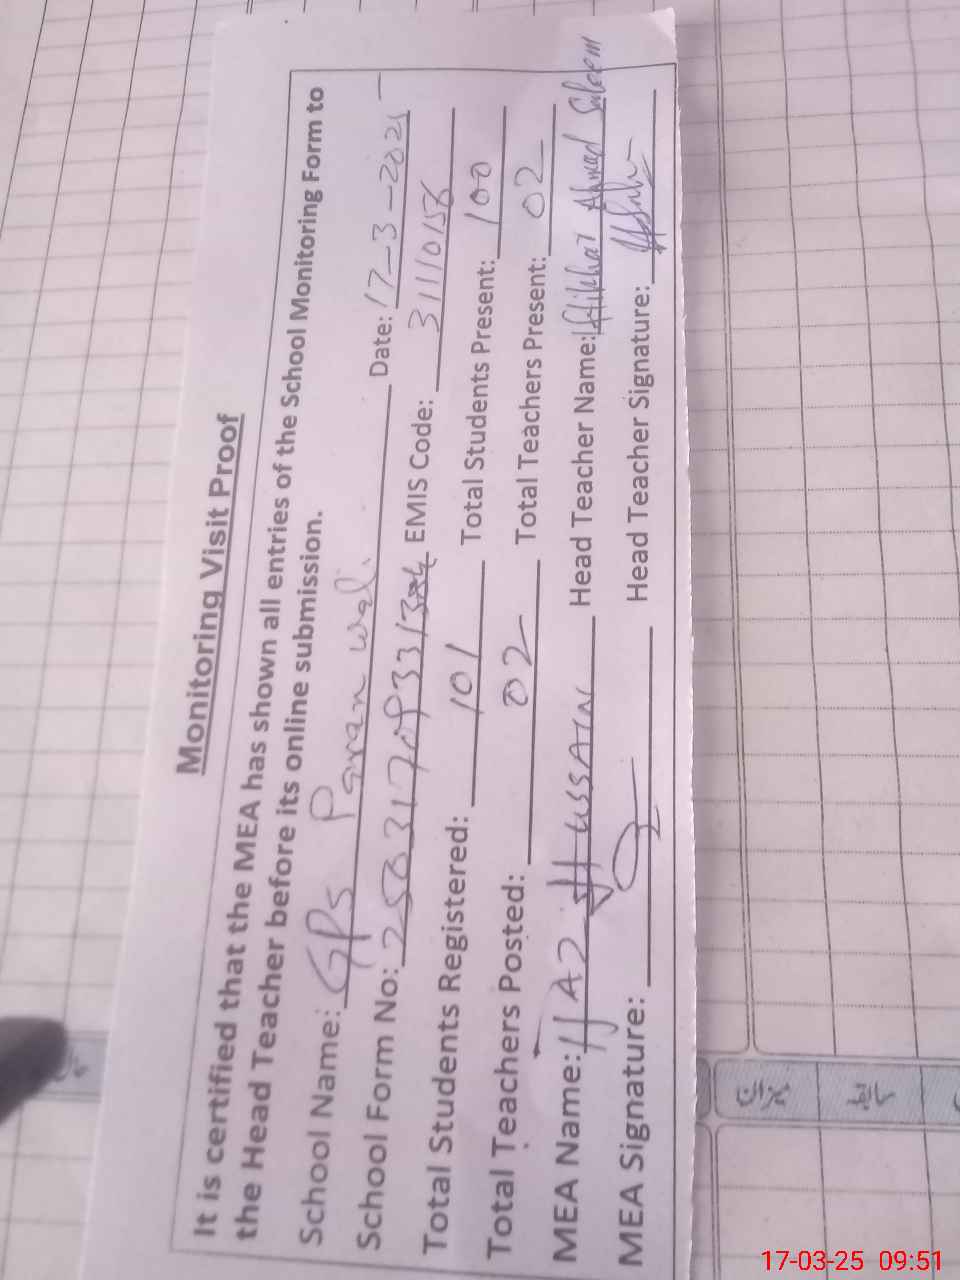 Monitoring Visit Proof
It is certified that the MEA has shown all entries of the School Monitoring Form to
the Head Teacher before its online submission.
School Name: GPS Paran wali Date: 17-3-2025
School Form No: EMIS Code: 31110158
Total Students Registered: 101 Total Students Present: 100
Total Teachers Posted: 02 Total Teachers Present: 02
MEA Name: HUSSAIN Head Teacher Name: Iftikhar Ahmad Saleem
MEA Signature: Head Teacher Signature:
17-03-25 09:51